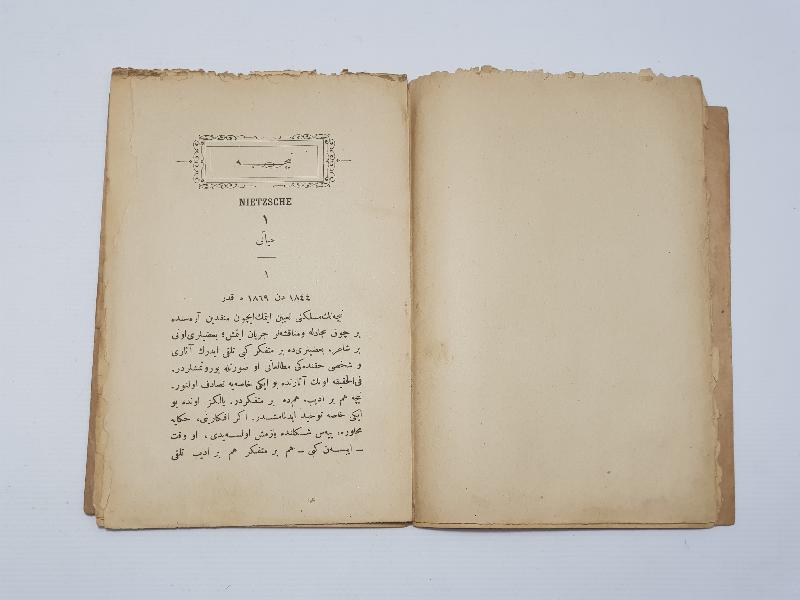 نیچه
NIETZSCHE
١
حیاتی
١
١٨٤٤ دن ١٨٦٩ ه قدر
نیچه‌نك مسلكنی تعیین ایتمك ایچون منقدین آره‌سنده
بر چوق مجادله ومناقشه‌لر جریان ایتمش؛ بعضیلری اونی
بر شاعر، بعضیلری ده بر متفكر كبی تلقی ایدرك آثاری
و شخصی حقنده‌كی مطالعاتی او صورتله یوروتمشلردر.
فی‌الحقیقه اونك آثارنده بو ایكی خاصه‌یه تصادف اولنور.
نیچه هم بر ادیب، هم‌ده بر متفكردر. یالكز اونده بو
ایكی خاصه توحید ایدیلمامشدر. اكر افكارینی، حكایه
محاوره، پیه‌س شكلنده یازمش اولسه‌یدی، او وقت
ـ ایبسه‌ن كبی ـ هم بر متفكر هم بر ادیب تلقی